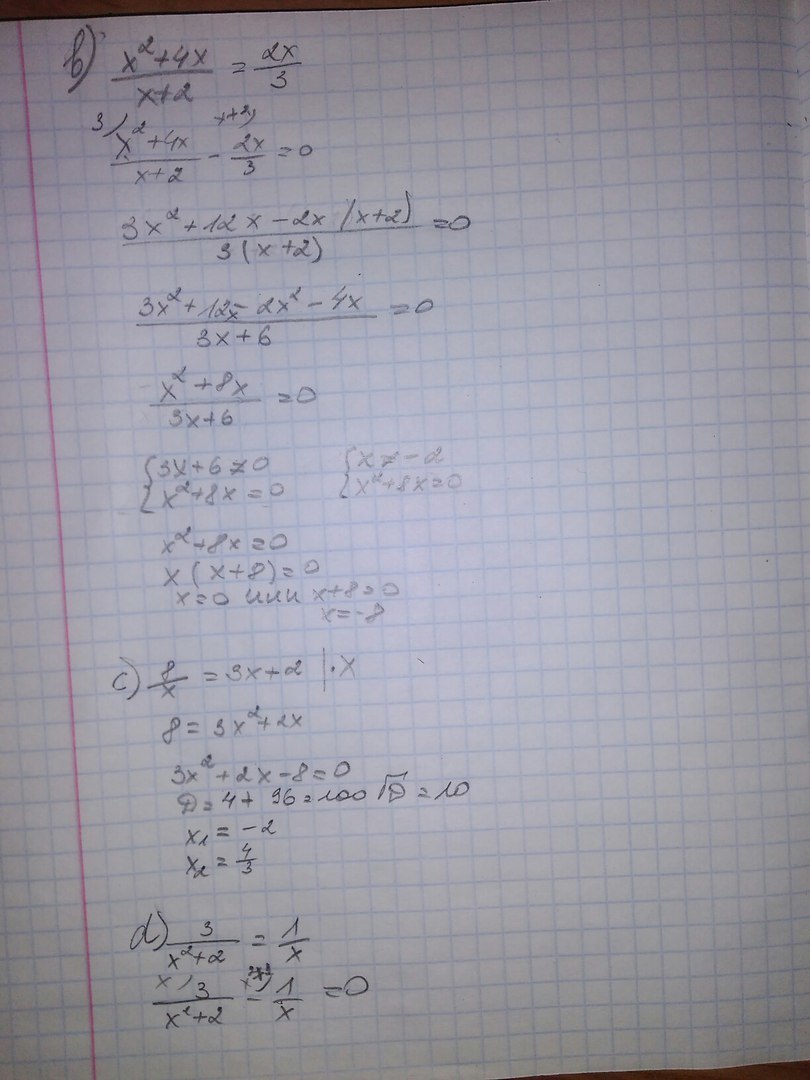 b) (x²+4x)/(x+2) = 2x/3
3) (x²+4x)/(x+2) - x+2) 2x/3 = 0
(3x²+12x-2x(x+2))/(3(x+2)) = 0
(3x²+12x-2x²-4x)/(3x+6) = 0
(x²+8x)/(3x+6) = 0
{3x+6≠0 {x≠-2
{x²+8x=0 {x²+8x=0
x²+8x=0
x(x+8)=0
x=0 или x+8=0
x=-8
c) 8/x = 3x+2 |·x
8=3x²+2x
3x²+2x-8=0
D=4+96=100 √D=10
x₁=-2
x₂=4/3
d) 3/(x²+2) = 1/x
x) 3/(x²+2) - 1/x = 0